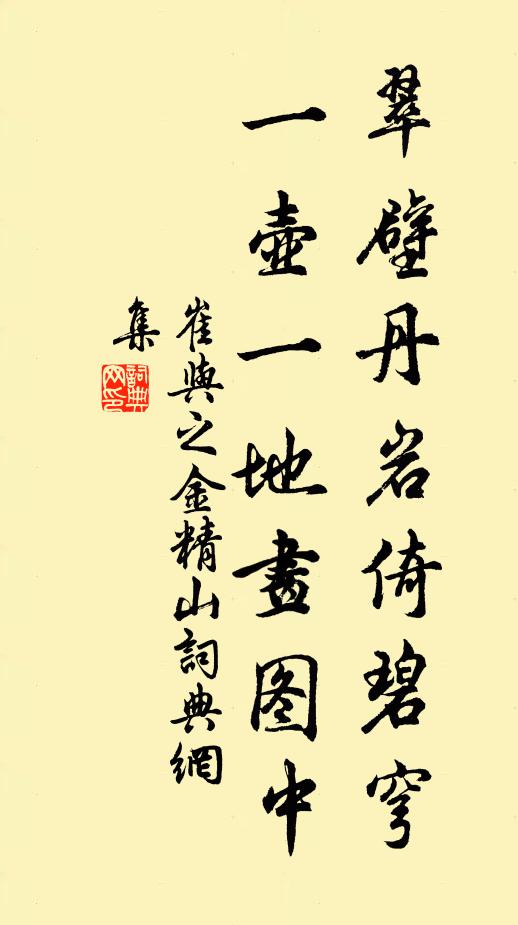 翠壁丹岩倚碧穹
一壺一地畫图中
崔與之金精山詞典網
集
詞典
网印